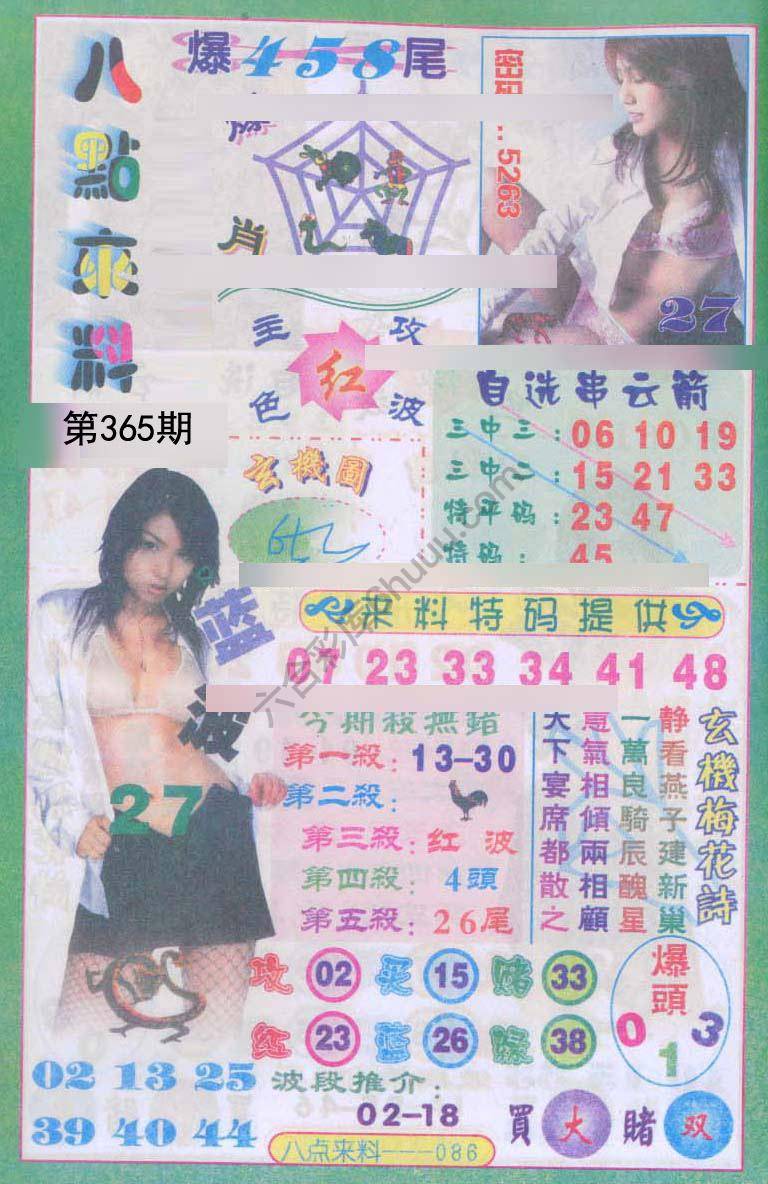 八點來料
爆458尾
肖
5263
27
主攻
红
色波
第365期
玄機圖
自选串云箭
三中三：06 10 19
三中二：15 21 33
特平码：23 47
特码：45
蓝波
27
来料特码提供
07 23 33 34 41 48
今期殺無錯
第一殺：13-30
第二殺：
第三殺：红波
第四殺：4頭
第五殺：26尾
玄機梅花詩
静看燕子建新巢
一萬良騎辰醜星
意氣相傾兩相顧
天下宴席都散之
攻 02 买 15 赌 33
红 23 蓝 26 綠 38
爆頭
0 1 3
02 13 25
39 40 44
波段推介：
02-18
買大賭双
八点来料---086
六合彩库6huuu.com